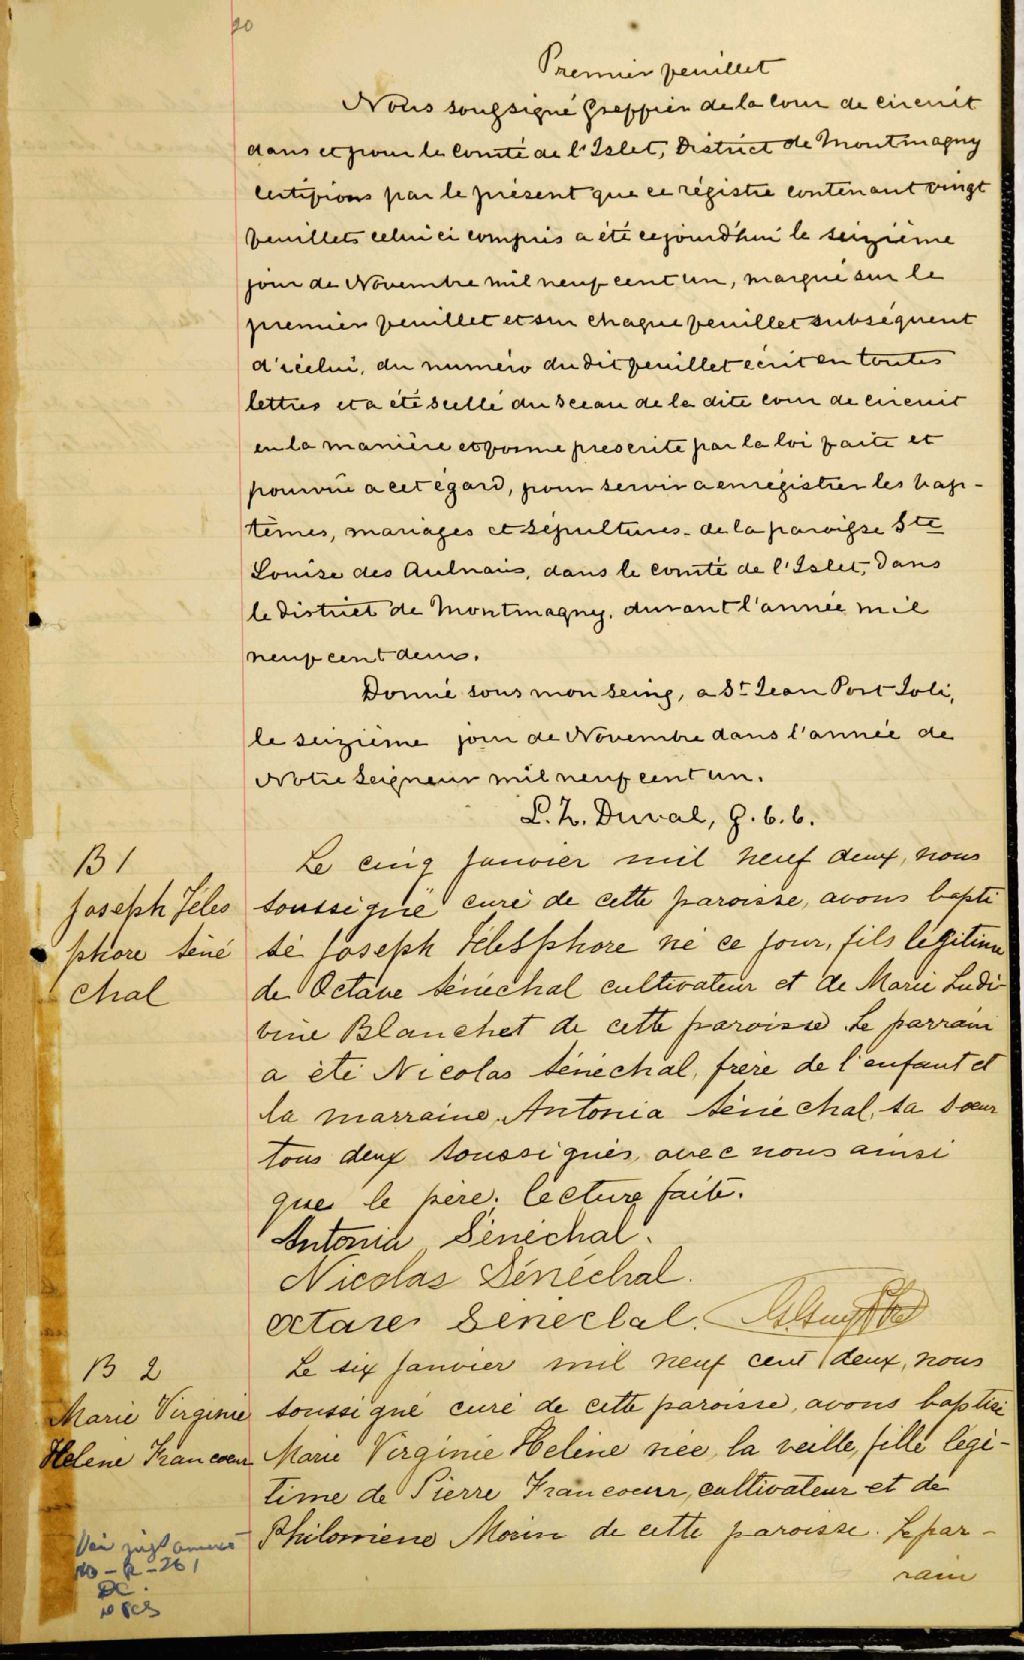 20
Premier feuillet
Nous soussigné Greffier de la cour de circuit
dans et pour le comté de l'Islet, District de Montmagny
certifions par le présent que ce régistre contenant vingt
feuillets celui ci compris a été cejourd'hui le seizième
jour de Novembre mil neuf cent un, marqué sur le
premier feuillet et sur chaque feuillet subséquent
d'icelui, du numéro du dit feuillet écrit en toutes
lettres et a été scellé du sceau de la dite cour de circuit
en la manière et forme prescrite par la loi faite et
pourvue a cet égard, pour servir a enrégistrer les bap-
têmes, mariages et sépultures de la paroisse Ste
Louise des Aulnais, dans le comté de l'Islet, dans
le district de Montmagny, durant l'année mil
neuf cent deux.
Donné sous mon seing, a St Jean Port Joli,
le seizième jour de Novembre dans l'année de
Notre Seigneur mil neuf cent un.
L. Z. Duval, G. C. C.
B 1
Joseph Téles
phore Séné
chal
Le cinq janvier mil neuf deux, nous
soussigné curé de cette paroisse, avons bapti
sé Joseph Télesphore né ce jour, fils légitime
de Octave Sénéchal cultivateur et de Marie Ludi-
vine Blanchet de cette paroisse. Le parrain
a été Nicolas Sénéchal, frère de l'enfant et
la marraine, Antonia Sénéchal, sa soeur
tous deux soussignés avec nous ainsi
que le père. Lecture faite.
Antonia Sénéchal.
Nicolas Sénéchal.
Octave Sénéclal.
B 2
Marie Virginie
Hélène Francoeur
Le six janvier mil neuf cent deux, nous
soussigné curé de cette paroisse, avons baptisé
Marie Virginie Hélène née la veille, fille légi-
time de Pierre Francoeur, cultivateur et de
Philomène Morin de cette paroisse. Le par-
rain